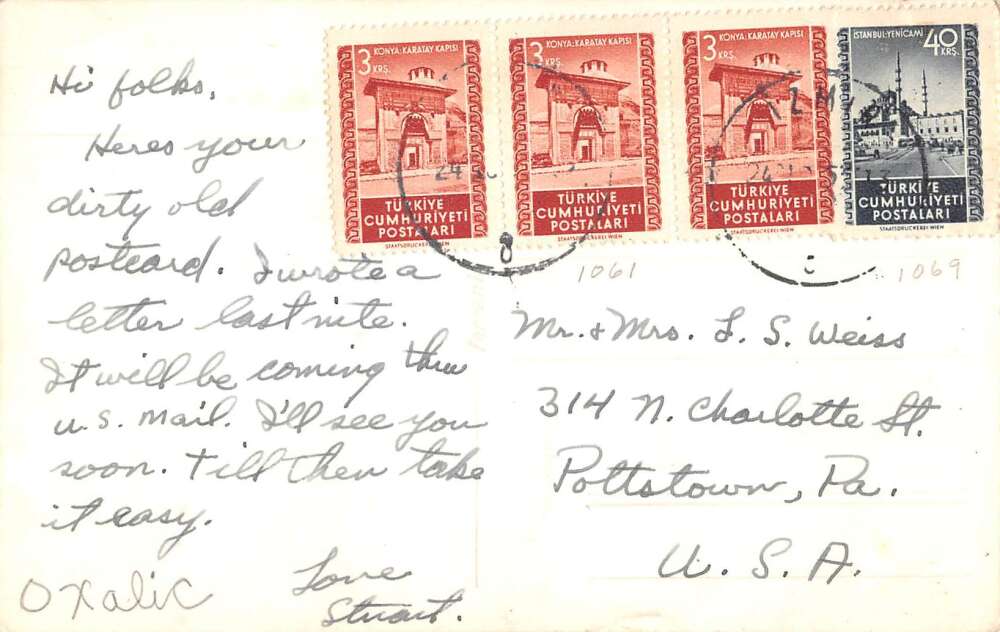 3 KRŞ. KONYA: KARATAY KAPISI
TÜRKİYE
CUMHURİYETİ
POSTALARI
STAATSDRUCKEREI WIEN
3 KRŞ. KONYA: KARATAY KAPISI
TÜRKİYE
CUMHURİYETİ
POSTALARI
STAATSDRUCKEREI WIEN
3 KRŞ. KONYA: KARATAY KAPISI
TÜRKİYE
CUMHURİYETİ
POSTALARI
STAATSDRUCKEREI WIEN
İSTANBUL-YENİCAMİ 40 KRŞ.
TÜRKİYE
CUMHURİYETİ
POSTALARI
STAATSDRUCKEREI WIEN
24
8
1061
1069
Hi folks,
Heres your
dirty old
postcard. I wrote a
letter last nite.
It will be coming thru
U.S. mail. I'll see you
soon. Till then take
it easy.
Love
Stuart.
Oxalic
Mr. & Mrs. L. S. Weiss
314 N. Charlotte St.
Pottstown, Pa.
U. S. A.